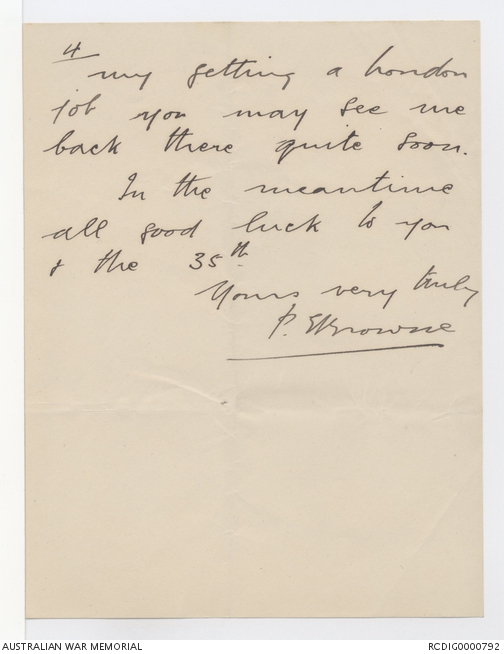 4
my getting a London
job you may see me
back there quite soon.
In the meantime
all good luck to you
& the 35th
Yours very truly
P. E. Browne
AUSTRALIAN WAR MEMORIAL
RCDIG0000792